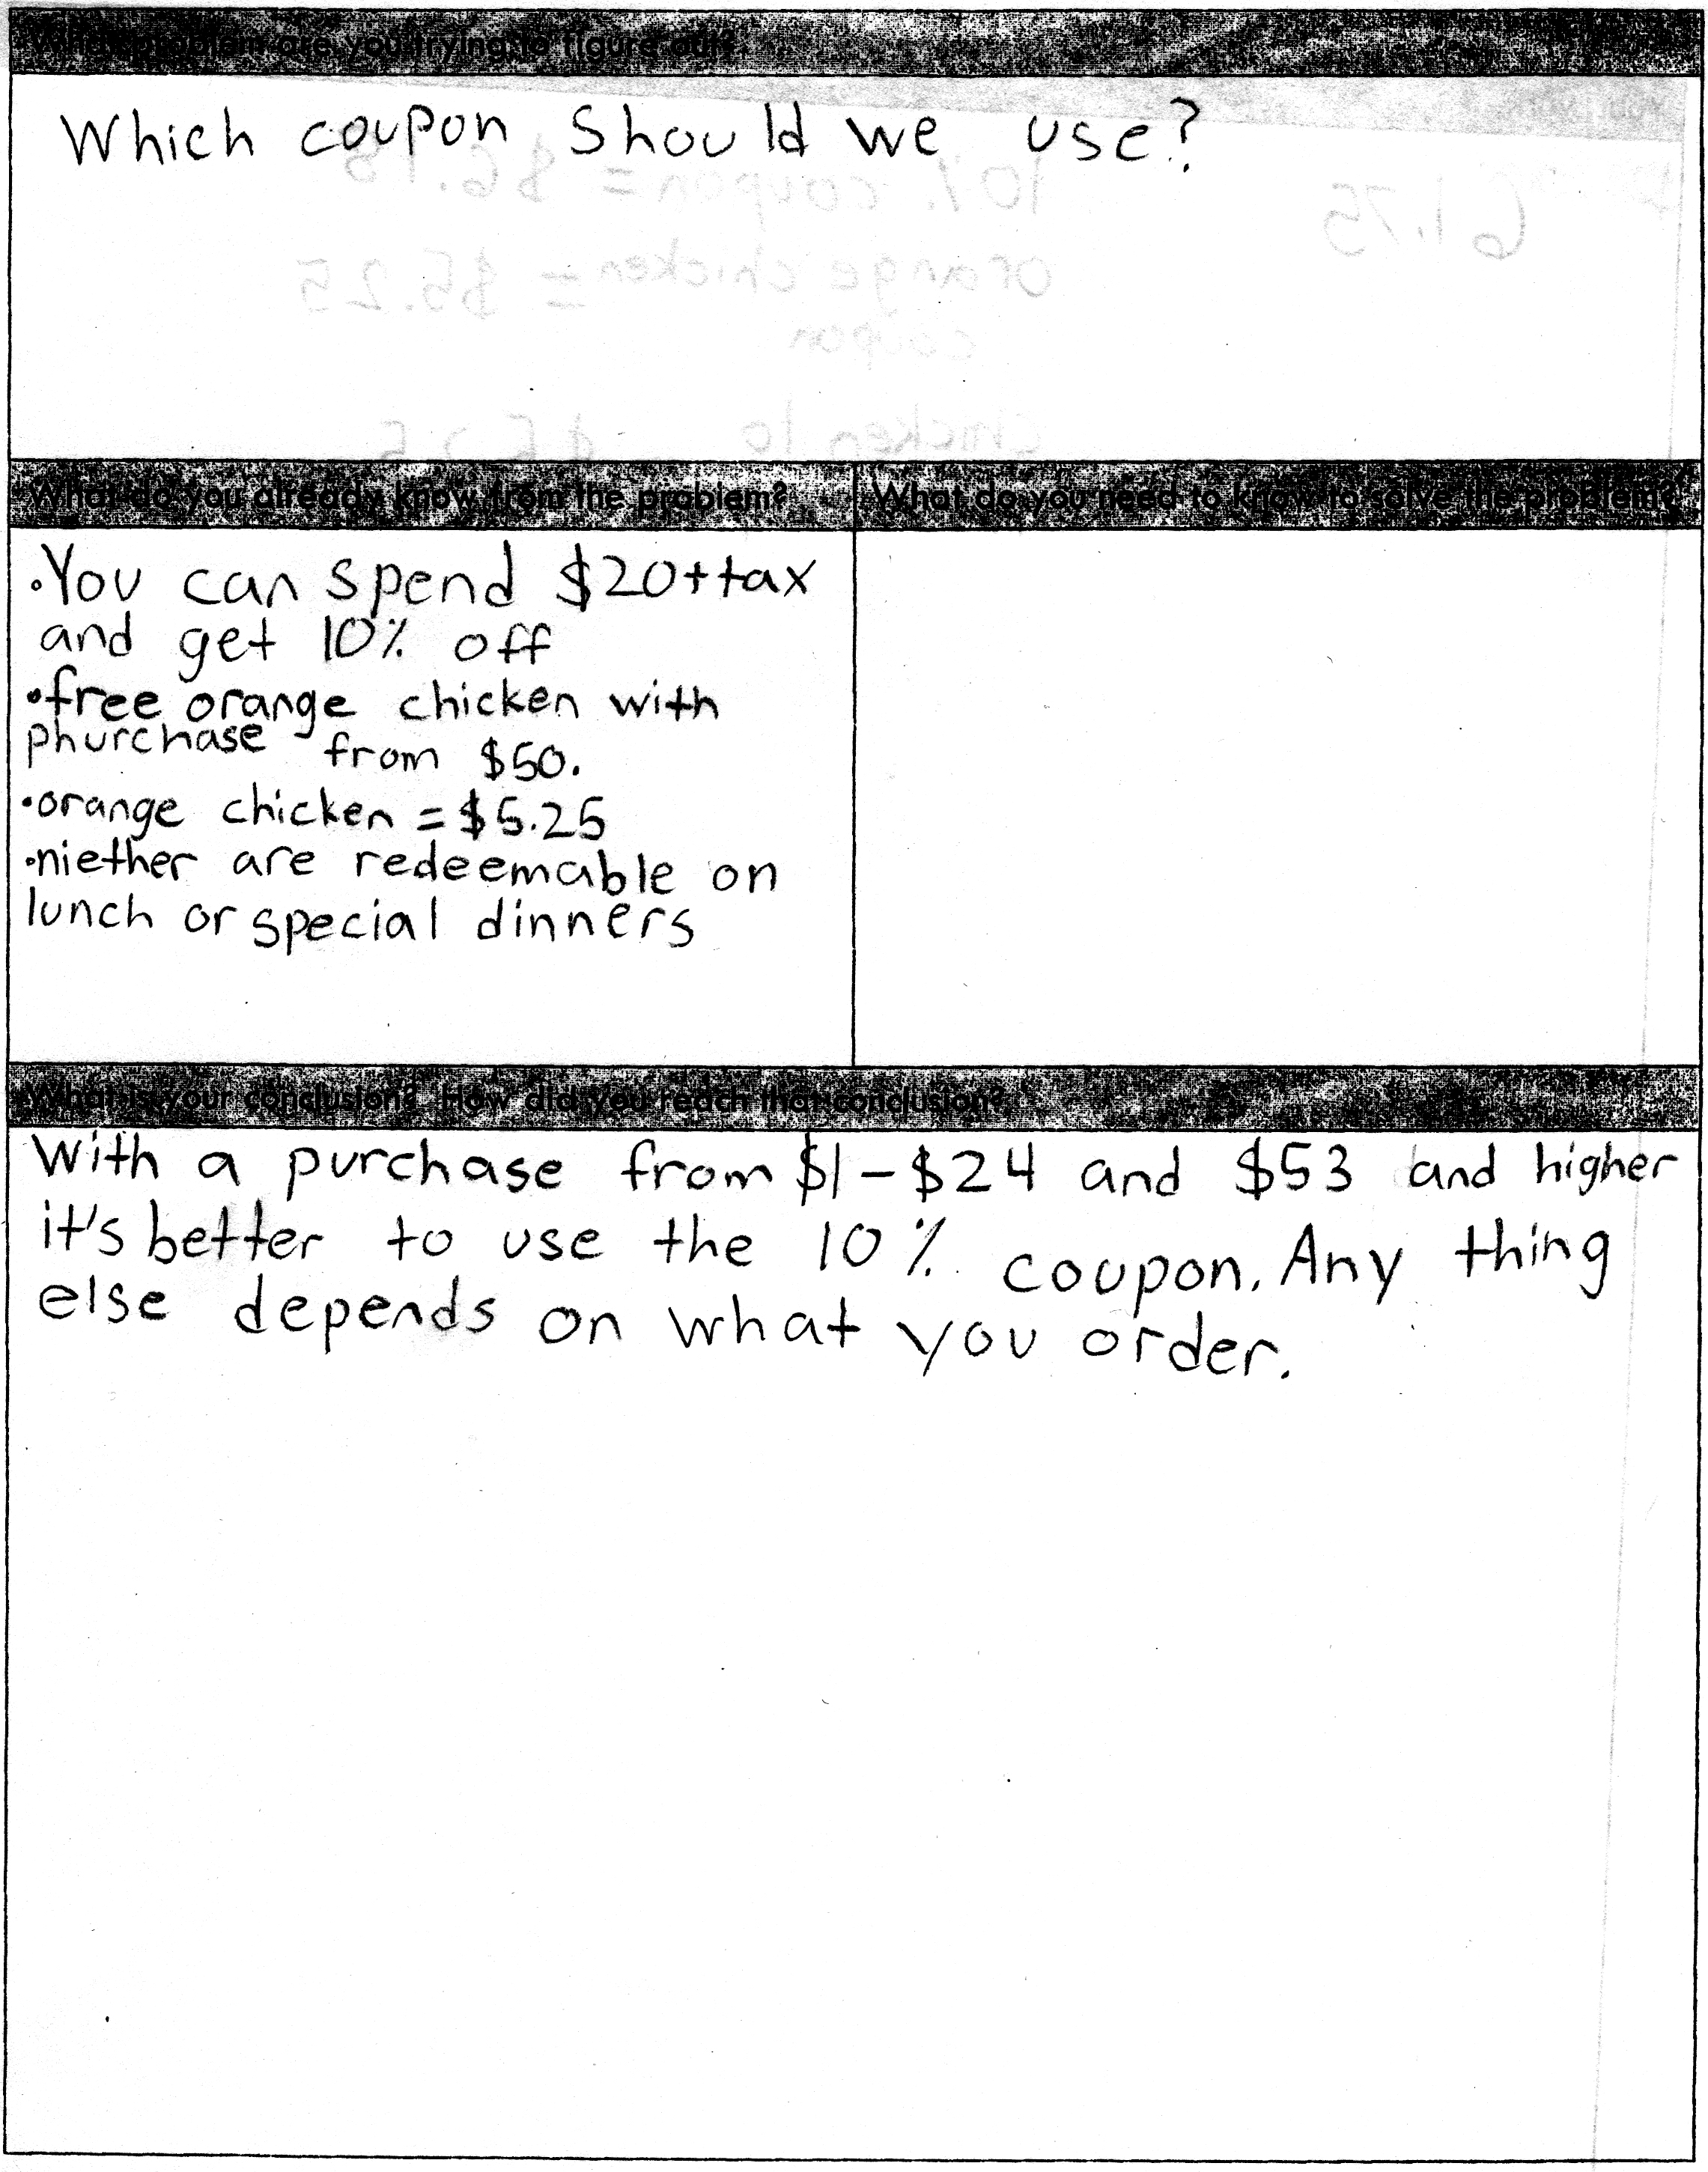 What problem are you trying to figure out?
Which coupon should we use?
10% coupon = $6.18
61.75
orange chicken = $5.25
coupon
chicken to $5.25
What do you already know from the problem?
What do you need to know to solve the problem?
•You can spend $20+tax
and get 10% off
•free orange chicken with
phurchase from $50.
•orange chicken = $5.25
•niether are redeemable on
lunch or special dinners
What is your conclusion? How did you reach that conclusion?
With a purchase from $1-$24 and $53 and higher
it's better to use the 10% coupon. Any thing
else depends on what you order.